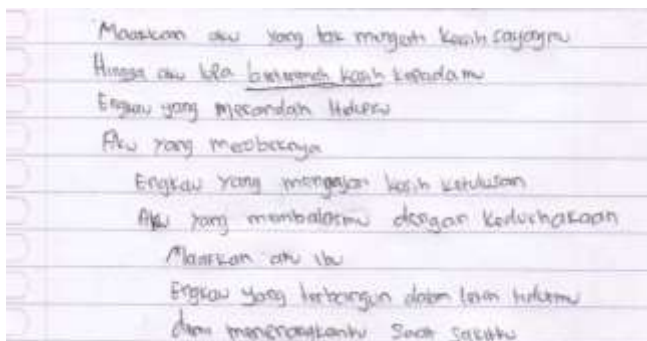 Maafkan aku yang tak mengerti kasih sayangmu
Hingga aku lupa berterimah kasih kepadamu
Engkau yang merandah hidupku
Aku yang
Engkau yang mengajari kasih ketulusan
Aku yang membalasmu dengan kedurhakaan
Maafkan aku ibu
Engkau yang terbangun dalam lelah tidurmu
demi menenangkanku saat sakitku